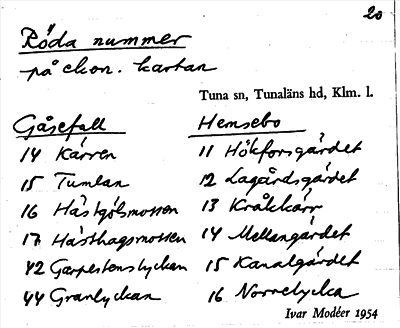 20
Röda nummer
på ekon. kartan
Tuna sn, Tunaläns hd, Klm. l.
Gåsefall
14 Kärren
15 Tumlan
16 Hästgölsmossen
17 Hästhagsmossen
42 Garpestenslyckan
44 Granlyckan
Hemsebo
11 Hökforsgärdet
12 Lagårdsgärdet
13 Kråkkärr
14 Mellangärdet
15 Kanalgärdet
16 Norrelycka
Ivar Modéer 1954